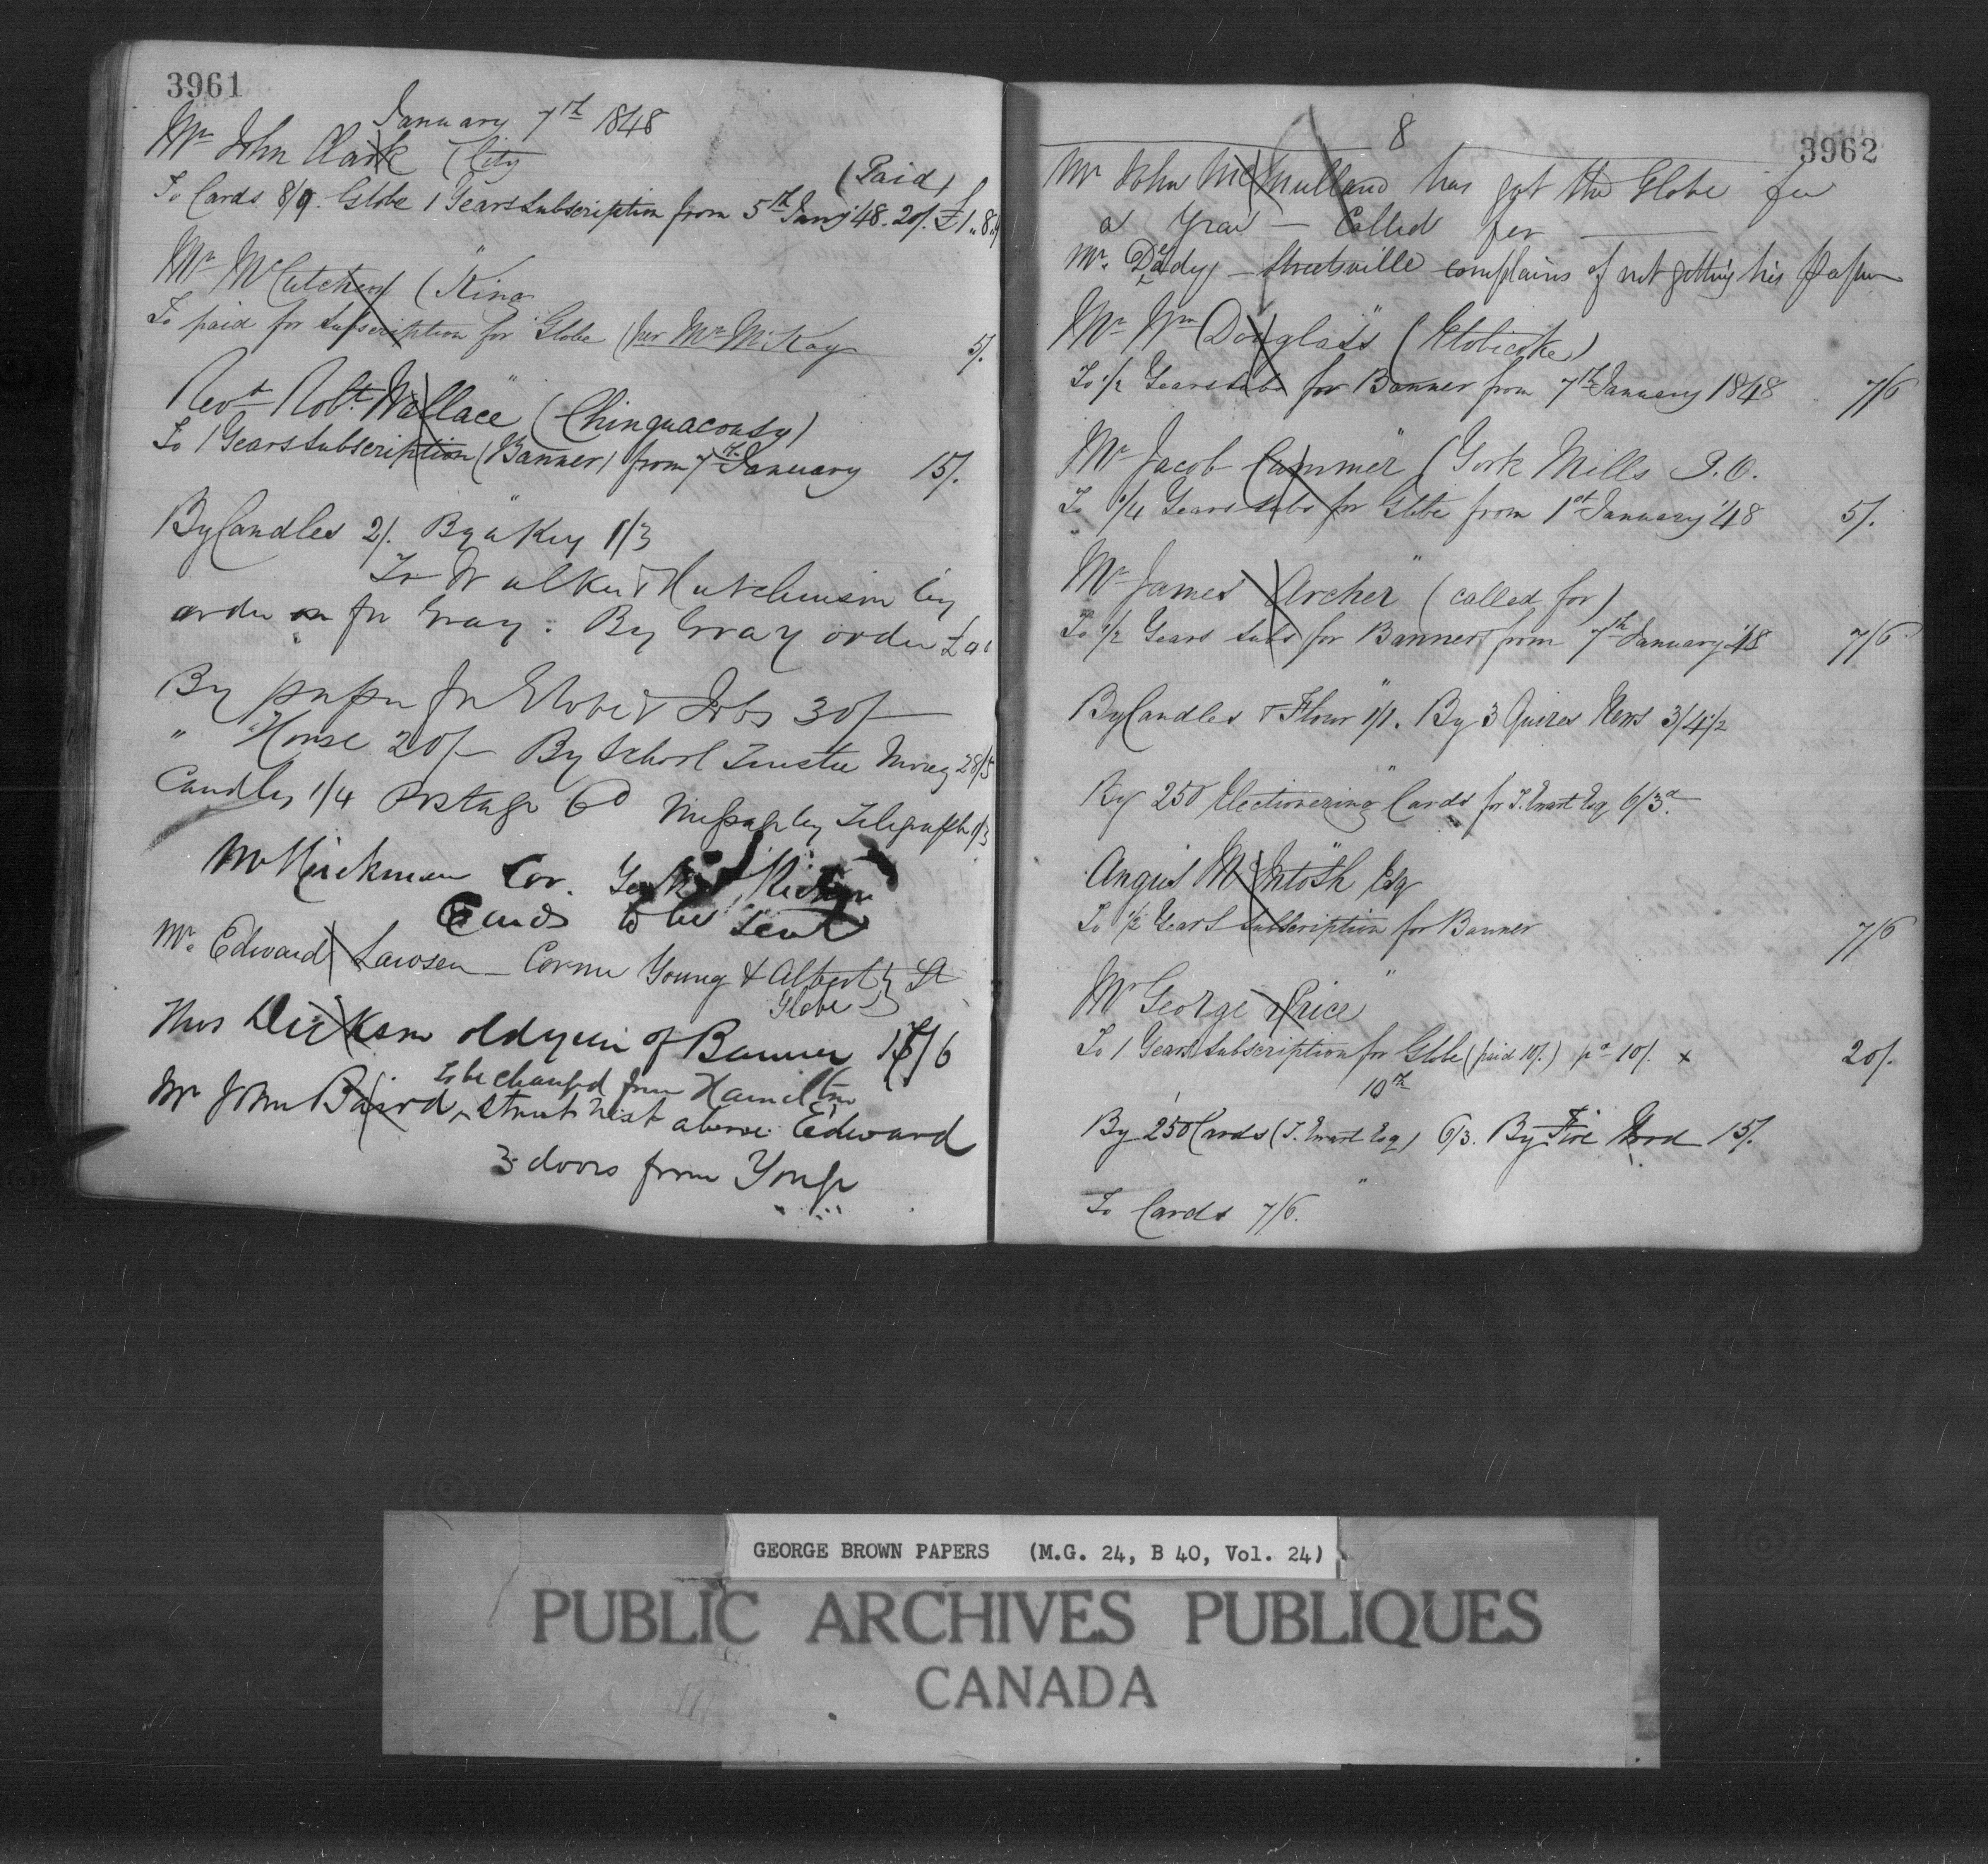 3961
January 7th 1848
Mr John Clark (City
(Paid)
To Cards 8/9. Globe 1 Years Subscription from 5th Jany '48. 20/. £1"8"9
"
Mr McCutcheon (King
To paid for Subscription for Globe (per Mr McKay 5/.
"
Revd Robt Wallace (Chinguacousy)
To 1 Years Subscription (Banner) from 7th January 15/.
"
By Candles 2/. By a Key 1/3
To Walker & Hutchinson by
order on for Gray. By Gray order £
By paper for Globe & Jobs 30/-
" House 20/- By School Trustee Money 28/5
Candles 1/4 Postage 6d Message by Telegraph 1/3
Mr Hickman Cor.
Cards to be sent
Mr. Edward Lawson - Corner Young & Albert St
Globe
Thos Dickson old year of Banner 17/6
to be changed from Hamilton
Mr John Baird, Street West above Edward
3 doors from Yonge
8
3962
Mr John McMulland has got the Globe for
a year - Called for
Mr. Deady - Streetsville complains of not getting his paper
"
Mr Wm Douglass (Etobicoke)
To 1/2 Years Subs for Banner from 7th January 1848 7/6
"
Mr Jacob Cummer (York Mills P.O.
To 1/4 Years Subs for Globe from 1st January '48 5/.
"
Mr James Archer (called for)
To 1/2 Years Subs for Banner from 7th January '48 7/6
"
By Candles & Flour 1/1. By 3 Quires News 3/4 1/2
"
By 250 Electionering Cards for T. Ewart Esq 6/3d
"
Angus McIntosh Esq
To 1/2 Years Subscription for Banner 7/6
"
Mr George Price
To 1 Years Subscription for Globe (paid 10/.) pd 10/. x 20/.
10th
By 250 Cards (T. Ewart Esq) 6/3. By Fire Wood 15/.
"
To Cards 7/6.
GEORGE BROWN PAPERS (M.G. 24, B 40, Vol. 24)
PUBLIC ARCHIVES PUBLIQUES
CANADA